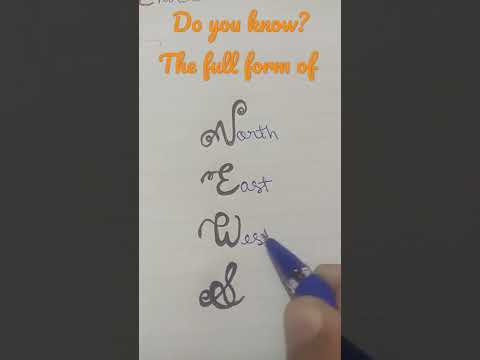 Do you know?
The full form of
North
East
West
S